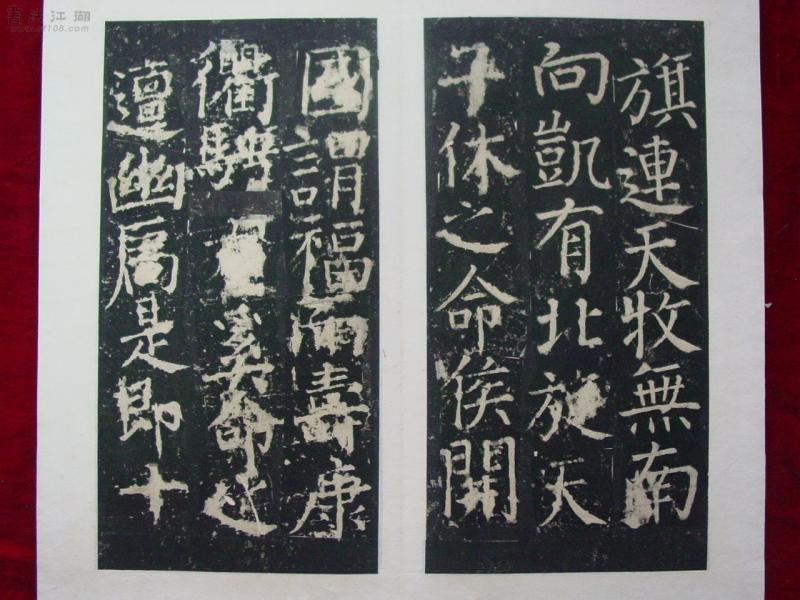 旗連天牧無南
向凱有北旋天
子休之命侯開
國謂福而壽康
衢騁奚命迍
邅幽扃是即十
書法江湖
www.sf108.com